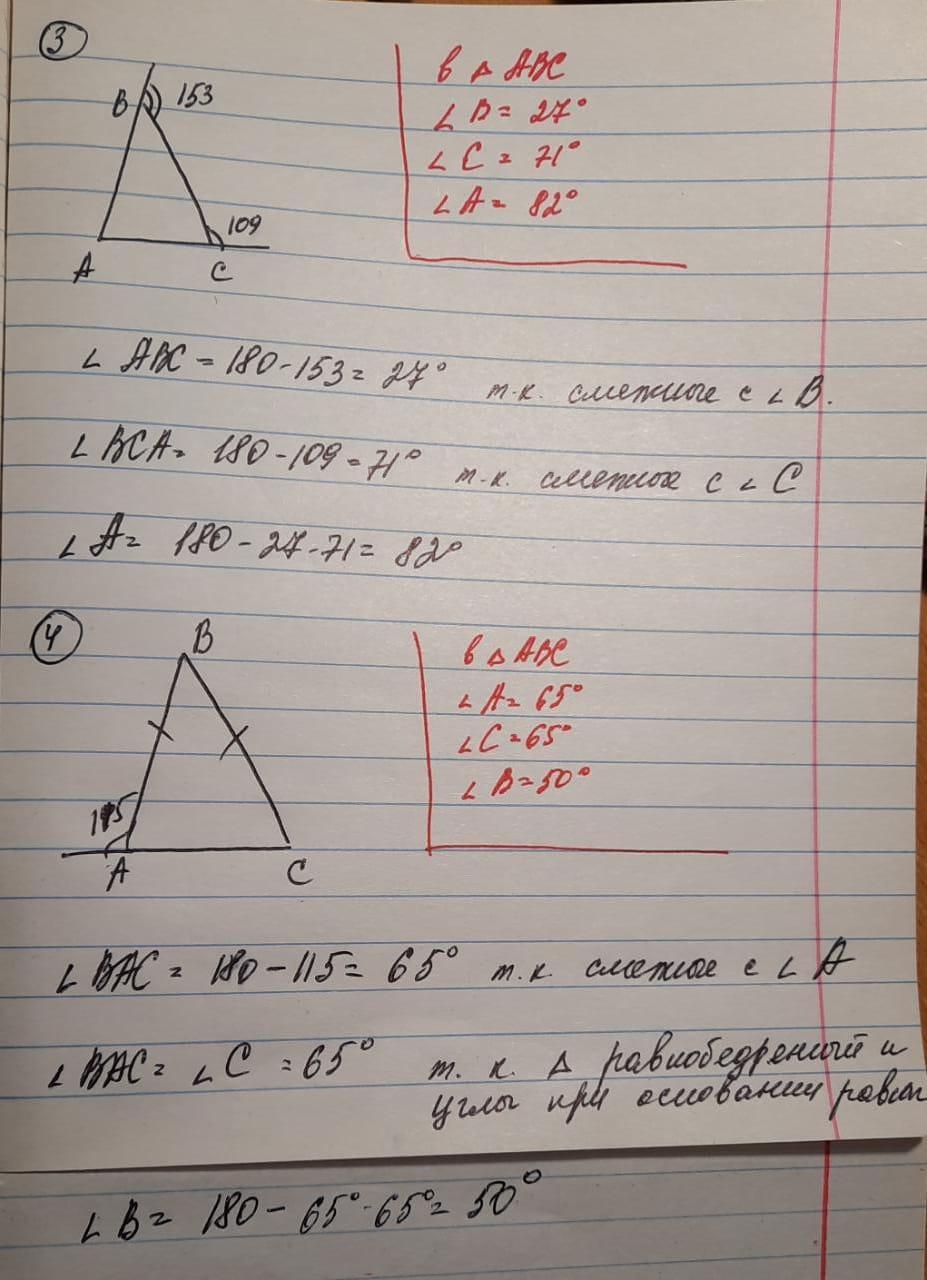 3
B 153
109
A C
в △ ABC
∠ B = 27°
∠ C = 71°
∠ A = 82°
∠ ABC = 180 - 153 = 27° т.к. смежные с ∠ B.
∠ BCA = 180 - 109 = 71° т.к. смежные с ∠ C
∠ A = 180 - 27 - 71 = 82°
4
B
115
A C
в △ ABC
∠ A = 65°
∠ C = 65°
∠ B = 50°
∠ BAC = 180 - 115 = 65° т.к. смежные с ∠ A
∠ BAC = ∠ C = 65° т. к. △ равнобедренный и
углы при основании равны
∠ B = 180 - 65° - 65° = 50°